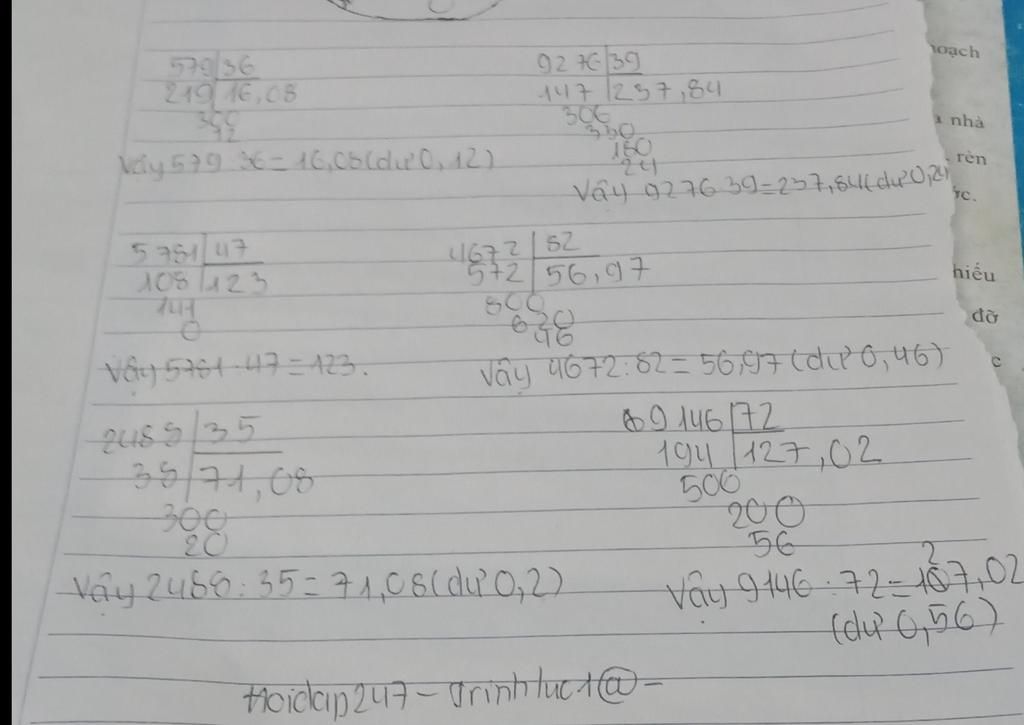 579 36
219 16,08
300
12
Vậy 579 : 36 = 16,08 (dư 0,12)
9276 39
147 237,84
306
330
180
24
Vậy 9276 39 = 237,84 (dư 0,24
5781 47
108 123
141
0
Vậy 5781 : 47 = 123.
4672 82
572 56,97
800
620
46
Vậy 4672 : 82 = 56,97 (dư 0,46)
2488 35
38 71,08
300
20
Vậy 2488 : 35 = 71,08 (dư 0,2)
9146 72
194 127,02
500
200
56
Vậy 9146 : 72 = 127,02
(dư 0,56)
Hoidap247 - trinhluc1@ -
hoạch
nhà
rèn
hiếu
đỡ
c